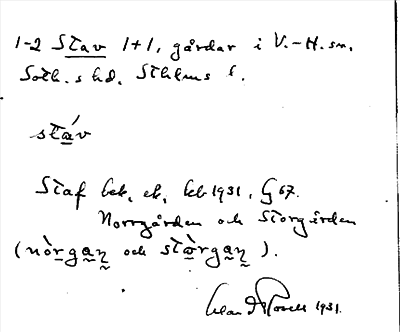 1-2 Stav 1+1, gårdar i V.-H. sn,
Soth. s hd. Sthlms l.
stáv
Staf bek. ek. kb 1931, G 67.
Norrgården och Storgården
(nòrgaɳ och stòrgaɳ).
1931.